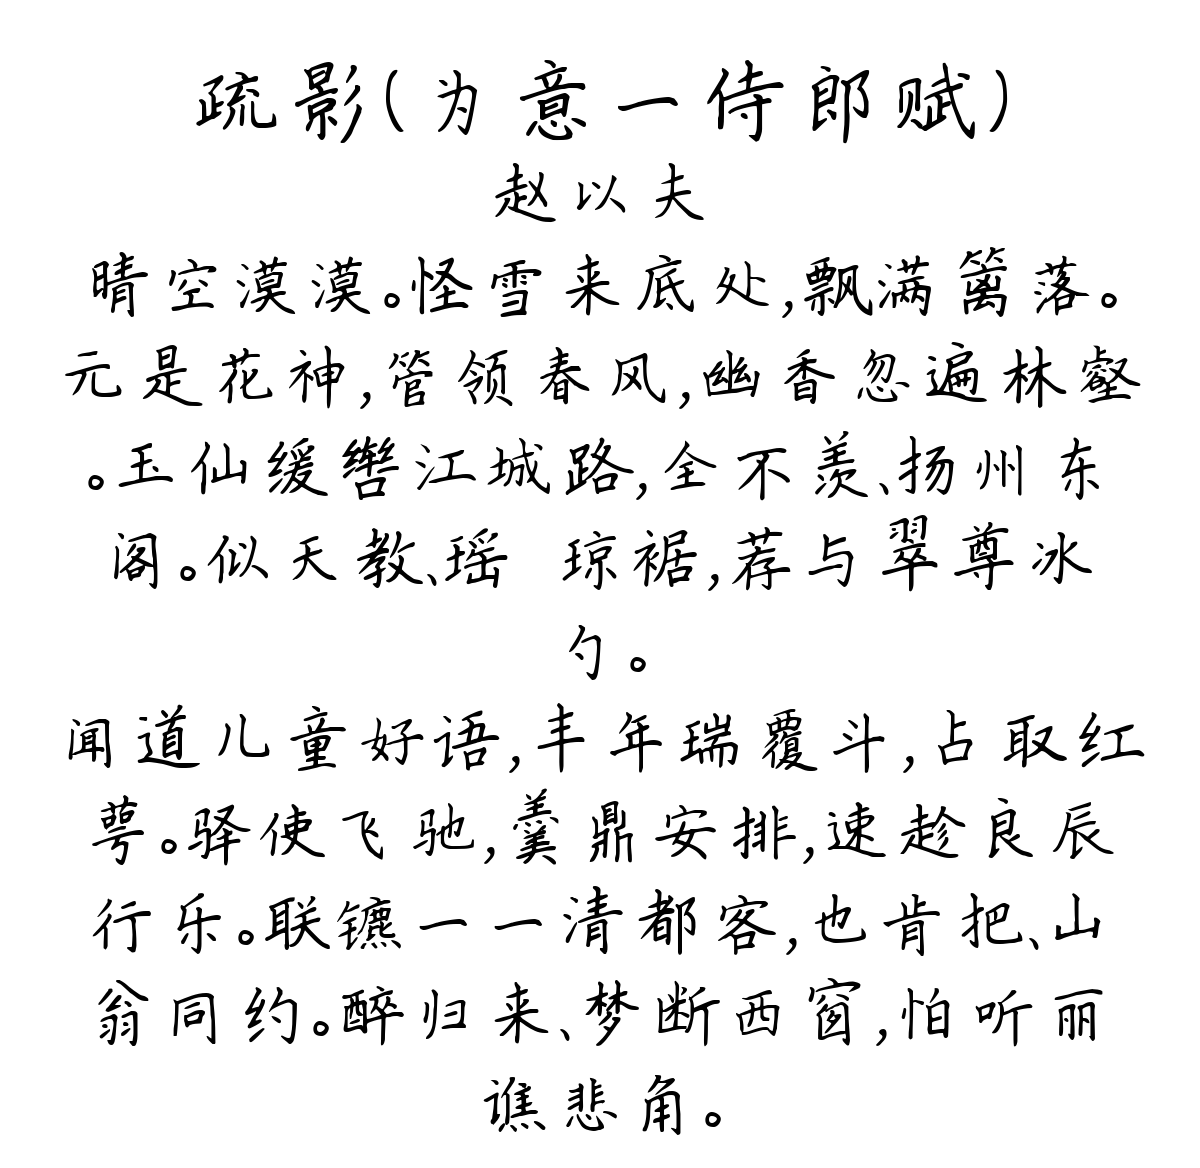 疏影(为意一侍郎赋)
赵以夫
晴空漠漠。怪雪来底处,飘满篱落。
元是花神,管领春风,幽香忽遍林壑
。玉仙缓辔江城路,全不羡、扬州东
阁。似天教、瑶 琼裾,荐与翠尊冰
勺。
闻道儿童好语,丰年瑞覆斗,占取红
萼。驿使飞驰,羹鼎安排,速趁良辰
行乐。联镳一一清都客,也肯把、山
翁同约。醉归来、梦断西窗,怕听丽
谯悲角。